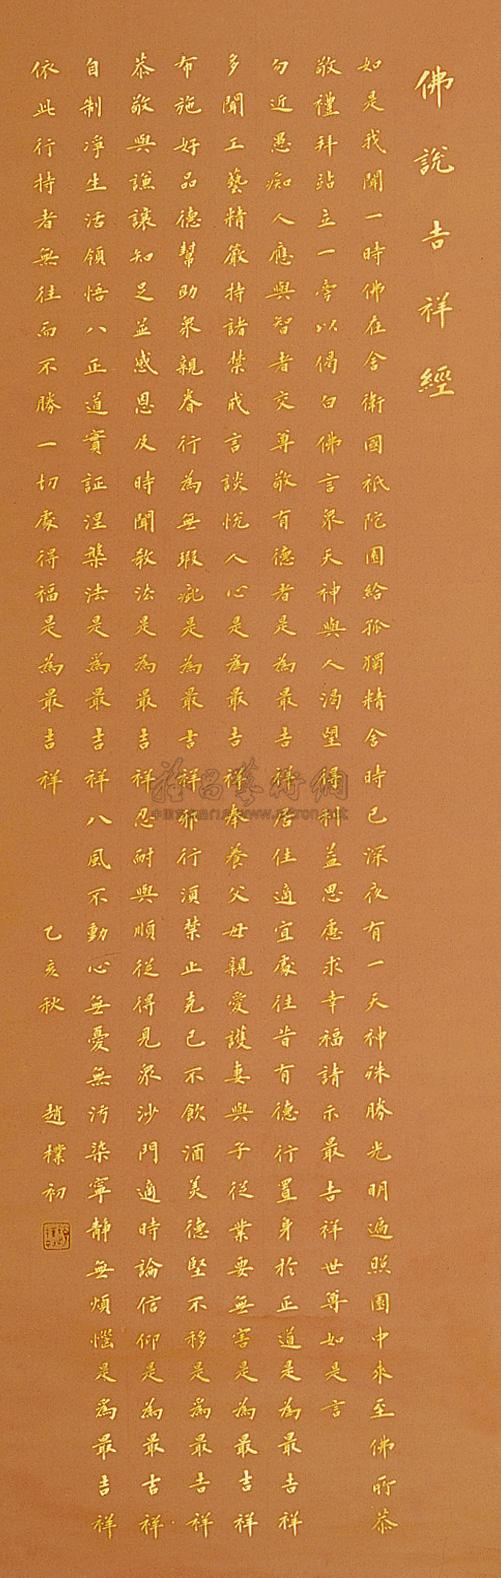 佛說吉祥經
如是我聞一時佛在舍衛國祇陀園給孤獨精舍時已深夜有一天神殊勝光明遍照園中來至佛所恭
敬禮拜站立一旁以偈白佛言眾天神與人渴望得利益思慮求幸福請示最吉祥世尊如是言
勿近愚痴人應與智者交尊敬有德者是為最吉祥居住適宜處往昔有德行置身於正道是為最吉祥
多聞工藝精嚴持諸禁戒言談悅人心是為最吉祥奉養父母親愛護妻與子從業要無害是為最吉祥
布施好品德幫助眾親眷行為無瑕疵是為最吉祥邪行須禁止克己不飲酒美德堅不移是為最吉祥
恭敬與謙讓知足並感恩及時聞教法是為最吉祥忍耐與順從得見眾沙門適時論信仰是為最吉祥
自制淨生活領悟八正道實証涅槃法是為最吉祥八風不動心無憂無污染寧靜無煩惱是為最吉祥
依此行持者無往而不勝一切處得福是為最吉祥 乙亥秋 趙樸初